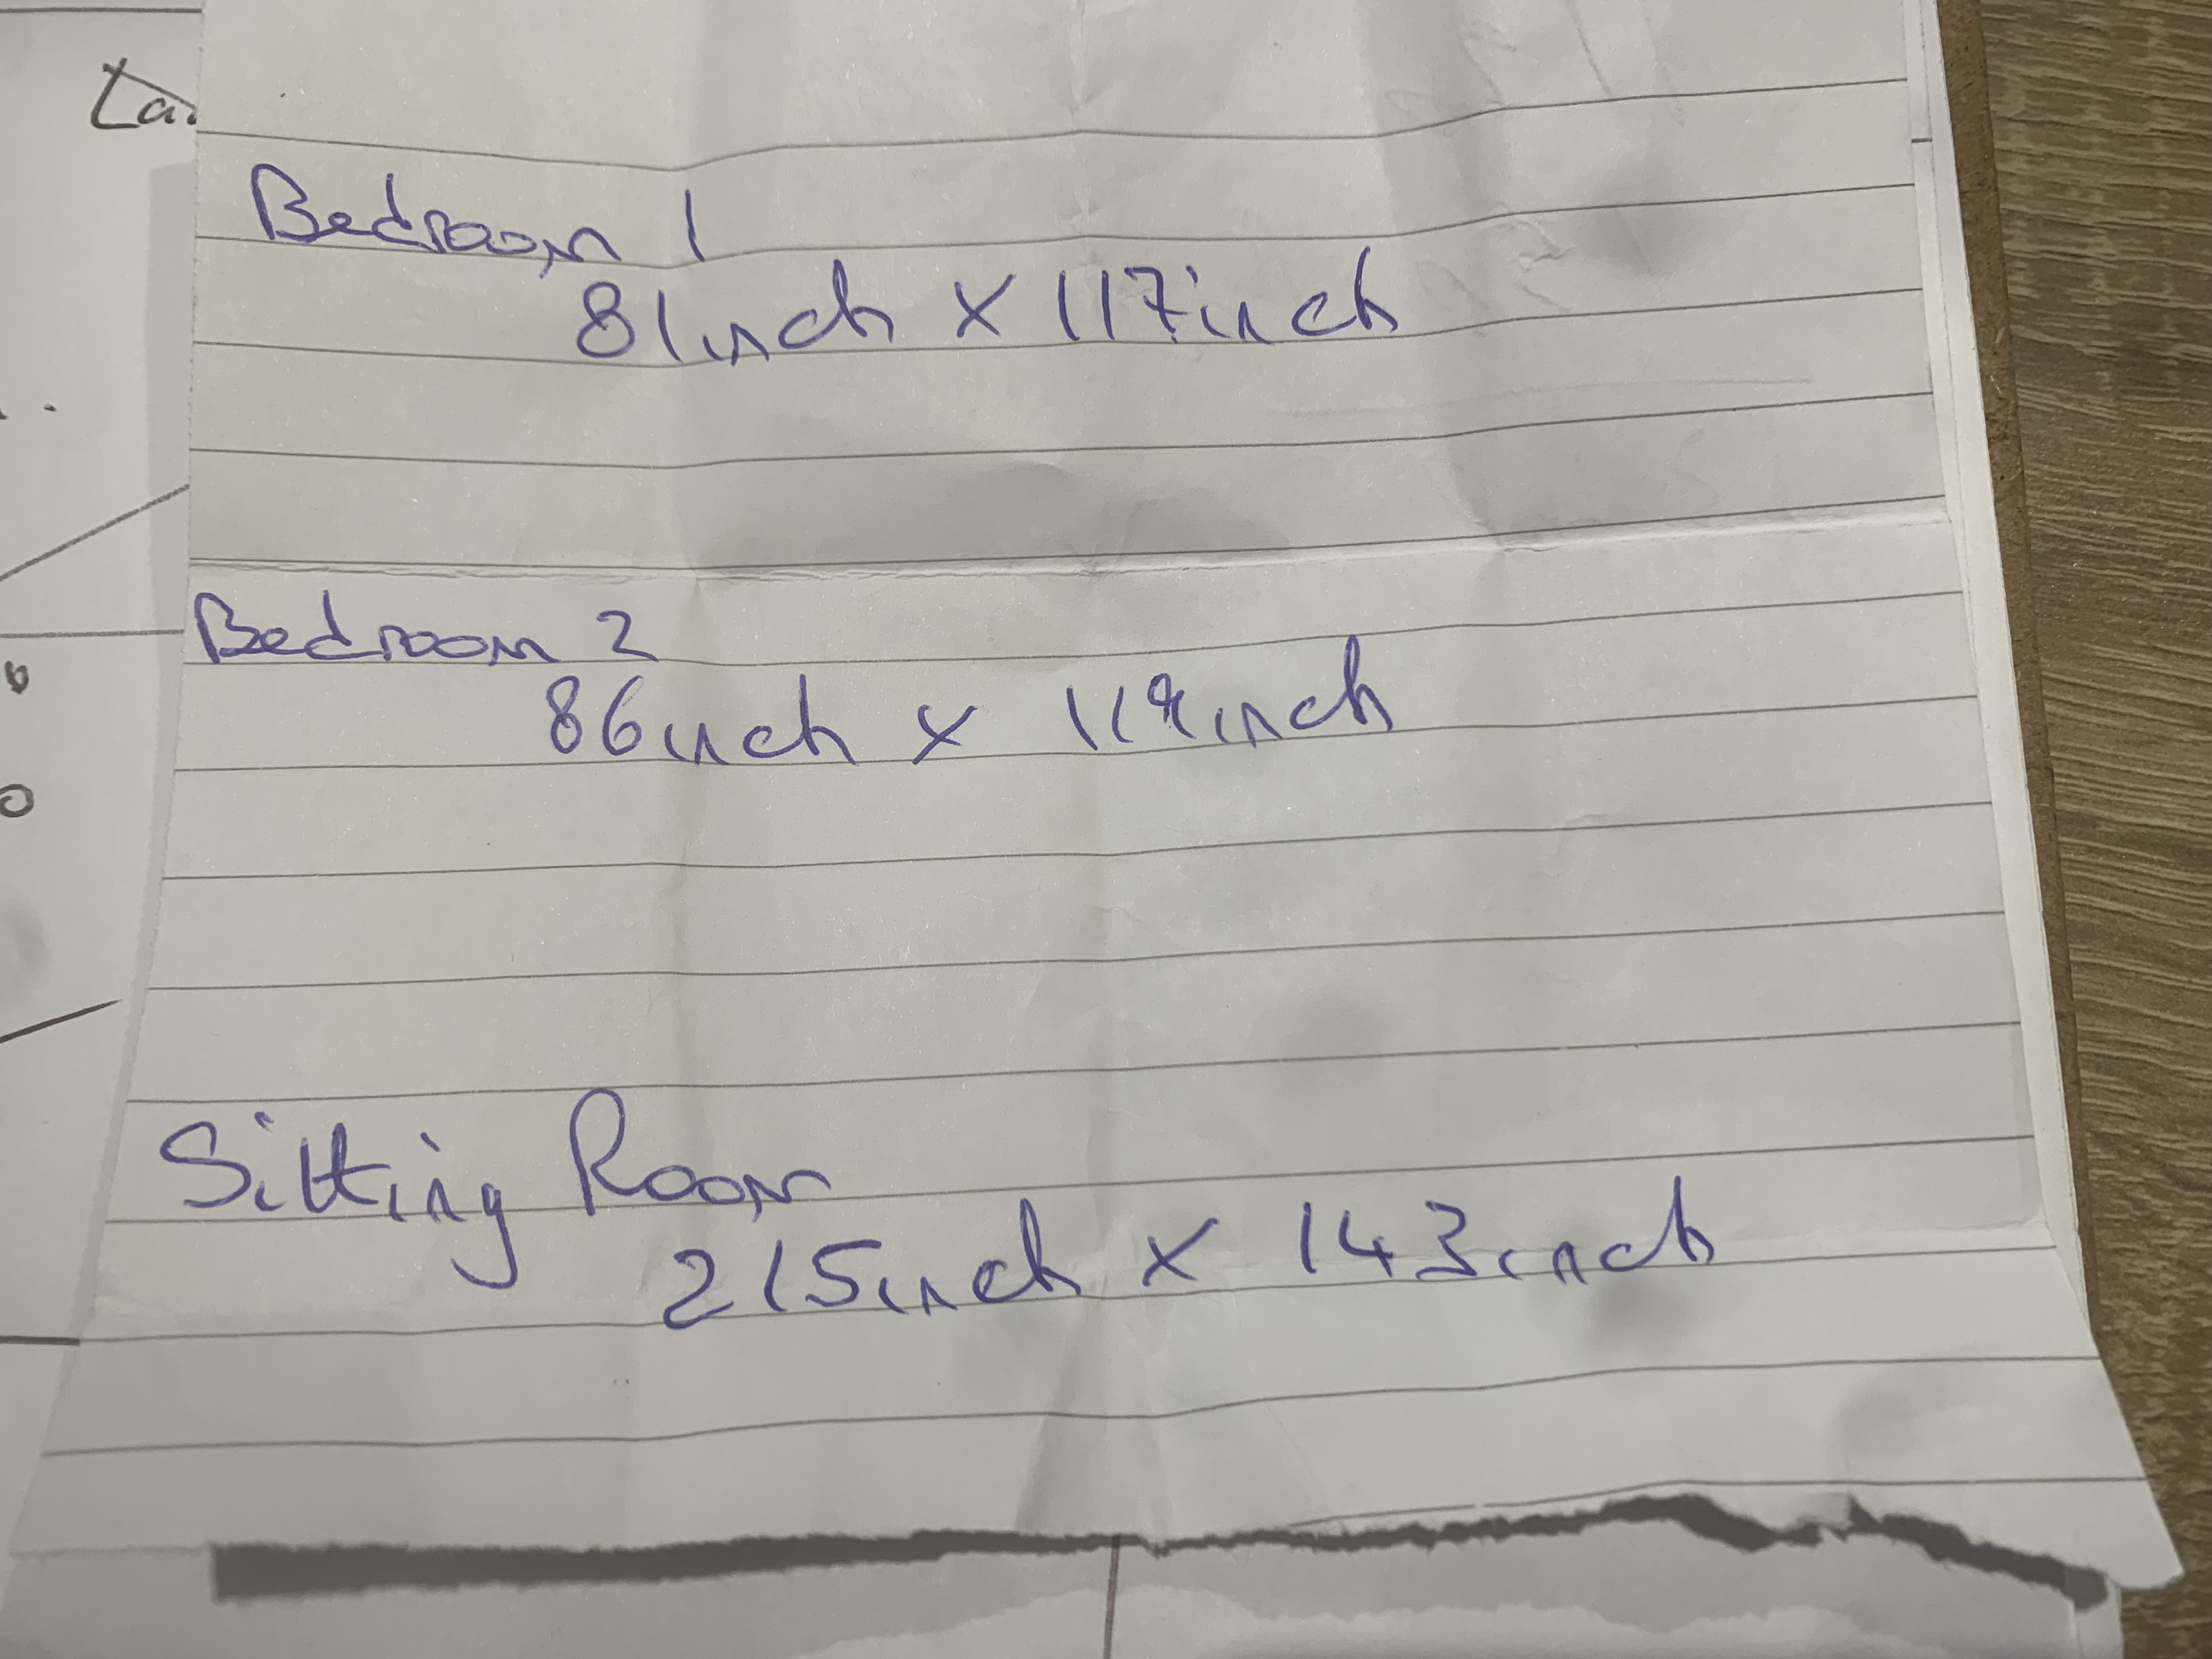 Bedroom 1
81inch x 117inch
Bedroom 2
86inch x 119inch
Sitting Room
215inch x 143inch